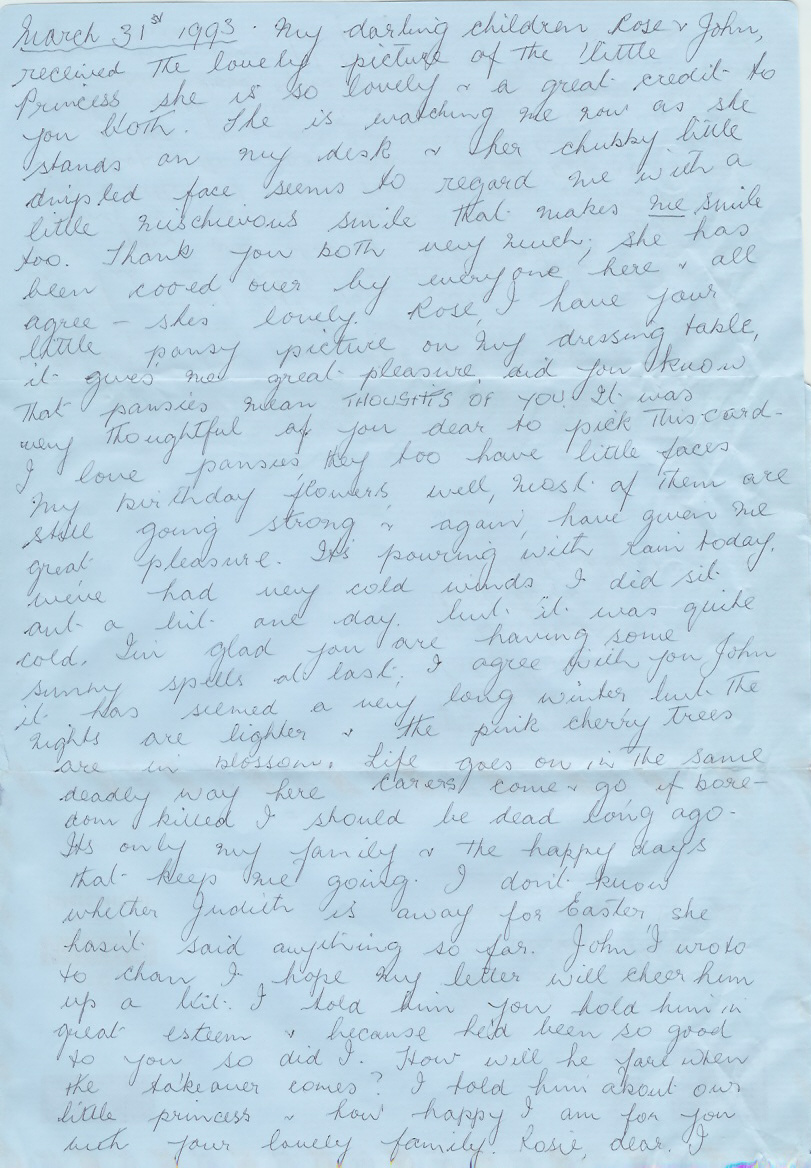 March 31st 1993. My darling children Rose & John,
received the lovely picture of the 'little
Princess she is so lovely & a great credit to
you both. She is watching me now as she
stands on my desk & her chubby little
dimpled face seems to regard me with a
little mischievous smile that makes me smile
too. Thank you both very much; she has
been cooed over by everyone here & all
agree – she's lovely. Rose, I have your
little pansy picture on my dressing table,
it gives me great pleasure, did you know
that pansies mean THOUGHTS OF YOU. It was
very thoughtful of you dear to pick this card-
I love pansies, they too have little faces
My birthday flowers well, most of them are
still going strong & again, have given me
great pleasure. It's pouring with rain today,
we've had very cold winds I did sit
out a bit one day. but it was quite
cold. I'm glad you are having some
sunny spells at last; I agree with you John
it has seemed a very long winter but the
nights are lighter & the pink cherry trees
are in blossom. Life goes on in the same
deadly way here carers come & go if bore-
dom killed I should be dead long ago-
Its only my family & the happy days
that keeps me going. I don't know
whether Judith is away for Easter, she
hasn't said anything so far. John I wrote
to chan I hope my letter will cheer him
up a bit. I told him you hold him in
great esteem & because he'd been so good
to you so did I. How will he fare when
the takeover comes? I told him about our
little princess & how happy I am for you
with your lovely family. Rosie, dear. I